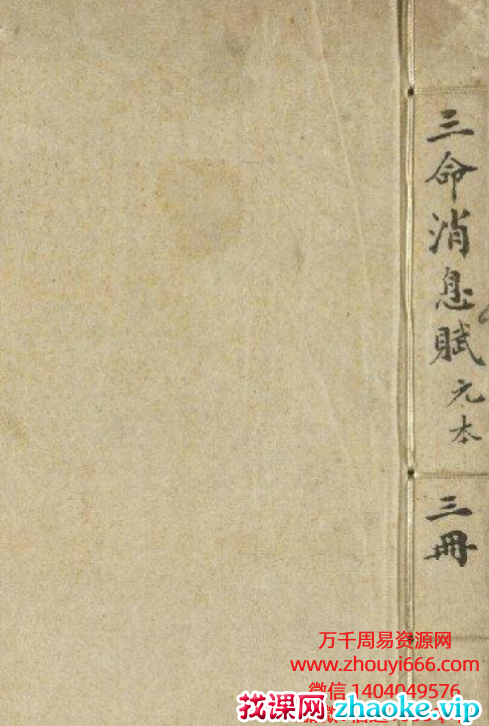 三命消息賦 元本
三冊
万千周易资源网
www.zhouyi666.com
微信 1404049576
找课网 zhaoke.vip